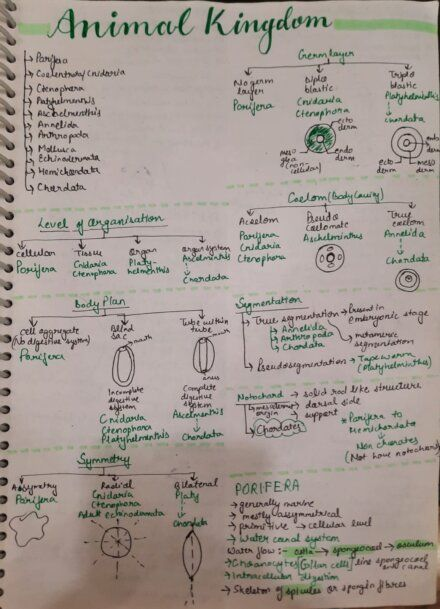 Animal Kingdom
Porifera
Coelentrata/Cnidaria
Ctenophora
Platyhelmenthis
Aschelmenthis
Annelida
Anthropoda
Mollusca
Echinodermata
Hemichordata
Chordata
Germ layer
No germ layer
Porifera
Diplo blastic
Cnidaria
Ctenophora
Triplo blastic
Platyhelminthis
chordata
ecto derm
endo derm
meso glea (non cellular)
meso derm
ecto derm
endo derm
Level of Organisation
Cellular
Porifera
Tissue
Cnidaria
Ctenophora
Organ
Platy-
helmenthis
Organ system
Ascelmentis
Chordata
Coelom (Body Cavity)
Acoelom
Porifera
Cnidaria
Ctenophora
Pseudo coelomate
Aschelminthus
True coelom
Annelida
Chordata
Body Plan
Cell aggregate
(No digestive system)
Porifera
Blind sac
mouth
Incomplete digestive system
Cnidaria
Ctenophora
Platyhelmenthis
Tube within tube
mouth
anus
Complete digestive system
Ascelmentis
Chordata
Segmentation
True segmentation → Present in embryonic stage
Annelida
Anthropoda
Chordata
metameric segmentation
Pseudosegmentation → Tapeworm
(Platyhelminthus)
Notochord → solid rod like structure
→ dorsal side
→ support
origin
Chordates
* Porifera to
Hemichordata
Non chorates
(Not have notochord)
Symmetry
Assymetry
Porifera
Radial
Cnidaria
Ctenophora
Adult echinodermata
Bilateral
Platy
Chordata
PORIFERA
→ generally marine
→ mostly assymmetrical
→ primitive → cellular level
→ Water canal system
Water flow :- ostia → spongocoel → osculum
→ Choanocytes (collar cells) line spongocoel and canal
→ Intracellular digestion
→ Skeleton of spicules or spongin fibres